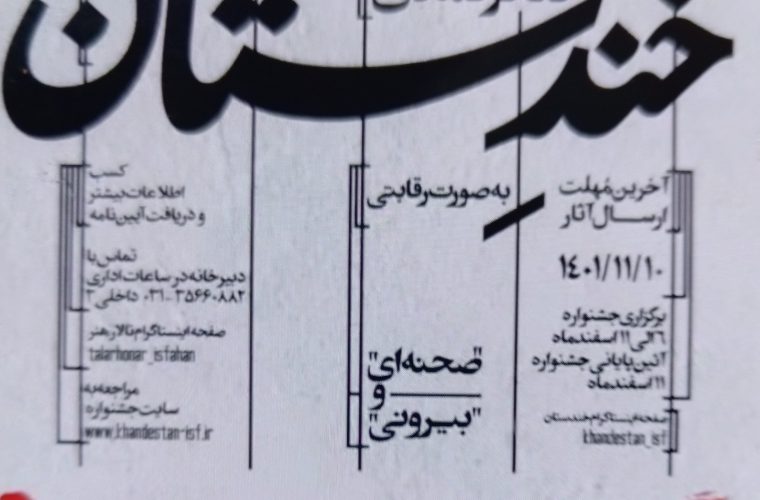 خندِستان
آخرین مُهلت
ارسال آثار
۱۴۰۱/۱۱/۱۰
برگزاری جشنواره
۶ الی ۱۱ اسفندماه
آئین پایانی جشنواره
۱۱ اسفندماه
صفحه اینستاگرام خندستان
khandestan_isf
به صورت رقابتی
"صحنه‌ای"
و
"بیرونی"
کسب
اطلاعات بیشتر
و دریافت آیین‌نامه
تماس با
دبیرخانه در ساعات اداری
۰۳۱-۳۵۶۶۰۸۸۲ داخلی ۳
صفحه اینستاگرام تالار هنر
talarhonar_isfahan
مراجعه به
سایت جشنواره
www.khandestan-isf.ir